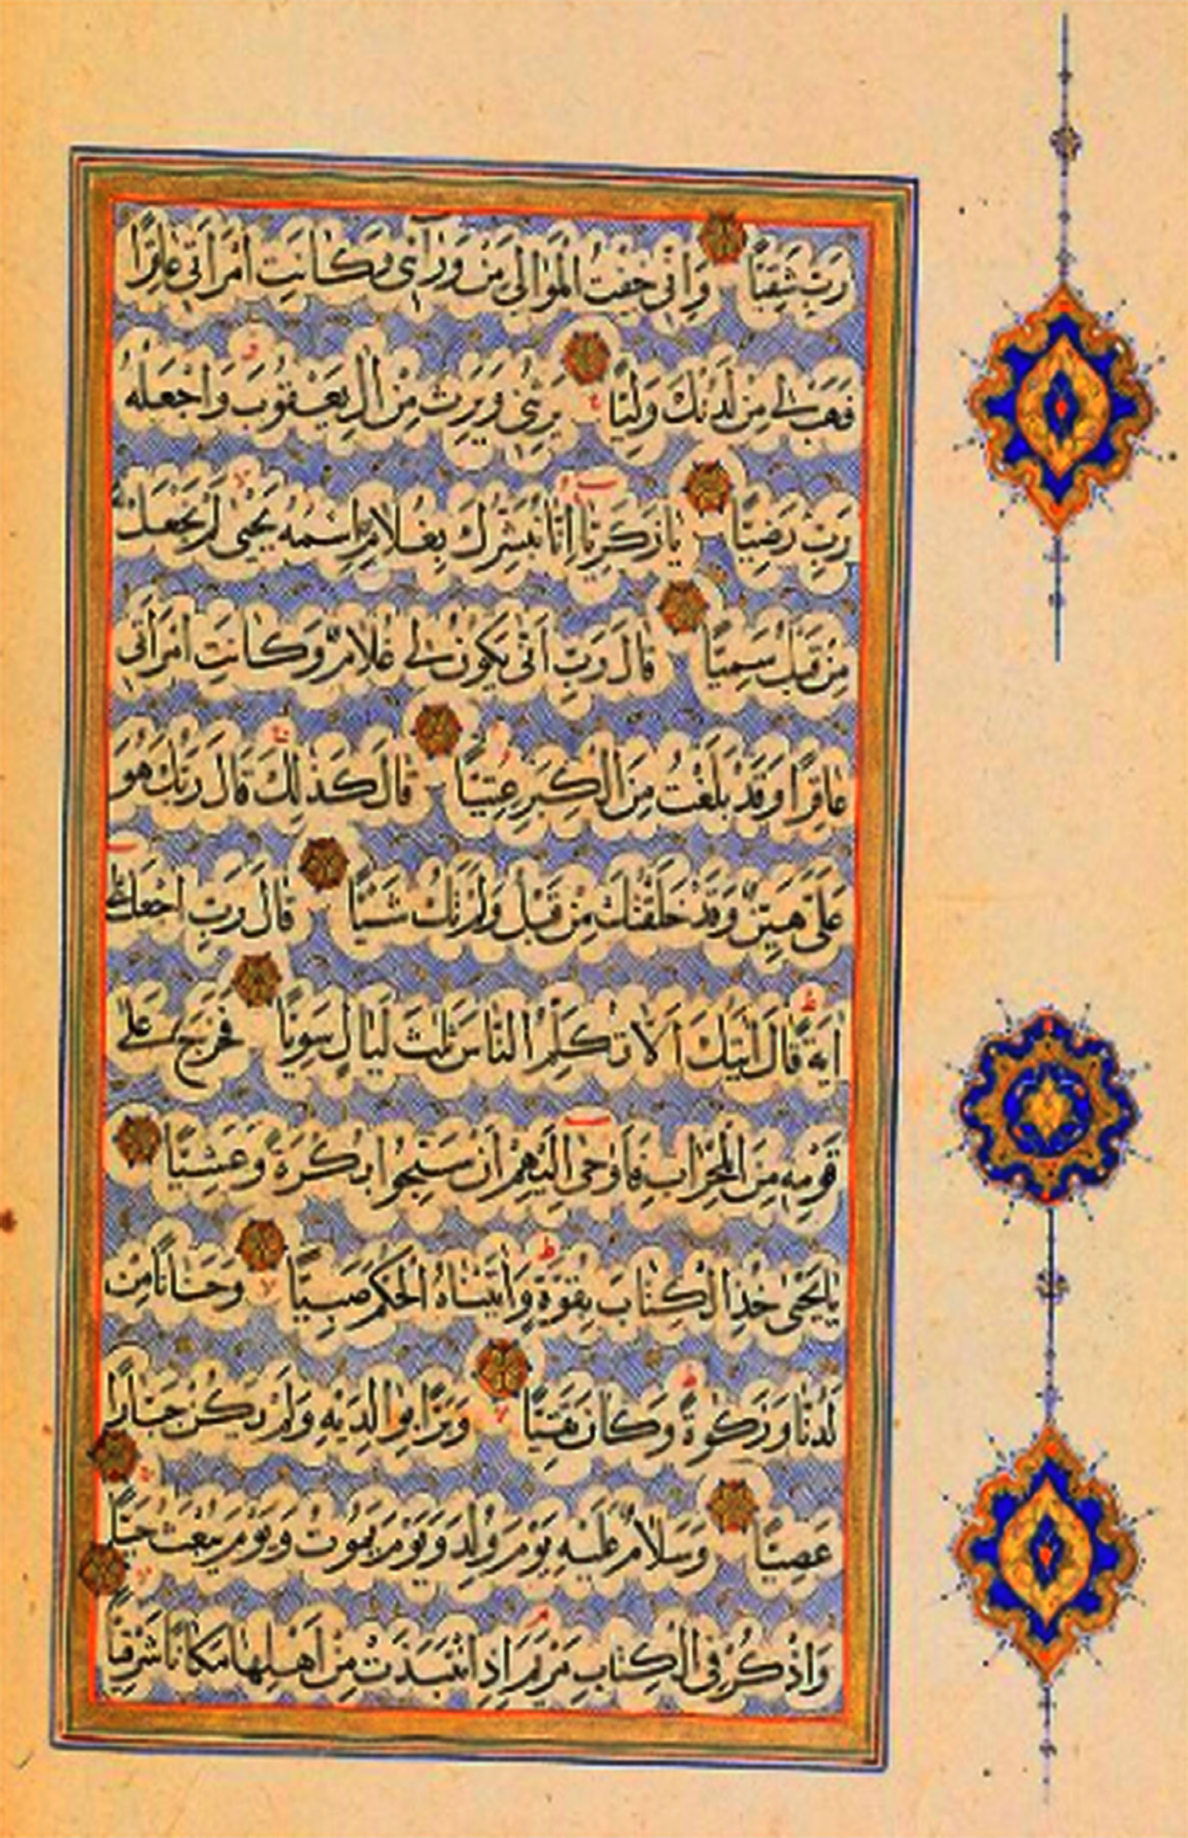 رَبِّ شَقِيًّا وَاِنّى خِفْتُ الْمَوٰالِىَ مِنْ وَرٰٓاىى وَكٰانَتِ امْرَاَتى عٰاقِرًا
فَهَبْ لى مِنْ لَدُنْكَ وَلِيًّا يَرِثُنى وَيَرِثُ مِنْ اٰلِ يَعْقُوبَ وَاجْعَلْهُ
رَبِّ رَضِيًّا يٰا زَكَرِيّٰا اِنّٰا نُبَشِّرُكَ بِغُلٰامٍ اسْمُهُ يَحْيٰى لَمْ نَجْعَلْ لَهُ
مِنْ قَبْلُ سَمِيًّا قٰالَ رَبِّ اَنّٰى يَكُونُ لى غُلٰامٌ وَكٰانَتِ امْرَاَتى
عٰاقِرًا وَقَدْ بَلَغْتُ مِنَ الْكِبَرِ عِتِيًّا قٰالَ كَذٰلِكَ قٰالَ رَبُّكَ هُوَ
عَلَىَّ هَيِّنٌ وَقَدْ خَلَقْتُكَ مِنْ قَبْلُ وَلَمْ تَكُ شَيْـًٔا قٰالَ رَبِّ اجْعَلْ لى
اٰيَةً قٰالَ اٰيَتُكَ اَلّٰا تُكَلِّمَ النّٰاسَ ثَلٰثَ لَيٰالٍ سَوِيًّا فَخَرَجَ عَلٰى
قَوْمِهِ مِنَ الْمِحْرٰابِ فَاَوْحٰى اِلَيْهِمْ اَنْ سَبِّحُوا بُكْرَةً وَعَشِيًّا
يٰا يَحْيٰى خُذِ الْكِتٰابَ بِقُوَّةٍ وَاٰتَيْنٰاهُ الْحُكْمَ صَبِيًّا وَحَنٰانًا مِنْ
لَدُنّٰا وَزَكٰوةً وَكٰانَ تَقِيًّا وَبَرًّا بِوٰالِدَيْهِ وَلَمْ يَكُنْ جَبّٰارًا
عَصِيًّا وَسَلٰامٌ عَلَيْهِ يَوْمَ وُلِدَ وَيَوْمَ يَمُوتُ وَيَوْمَ يُبْعَثُ حَيًّا
وَاذْكُرْ فِى الْكِتٰابِ مَرْيَمَ اِذِ انْتَبَذَتْ مِنْ اَهْلِهٰا مَكٰانًا شَرْقِيًّا